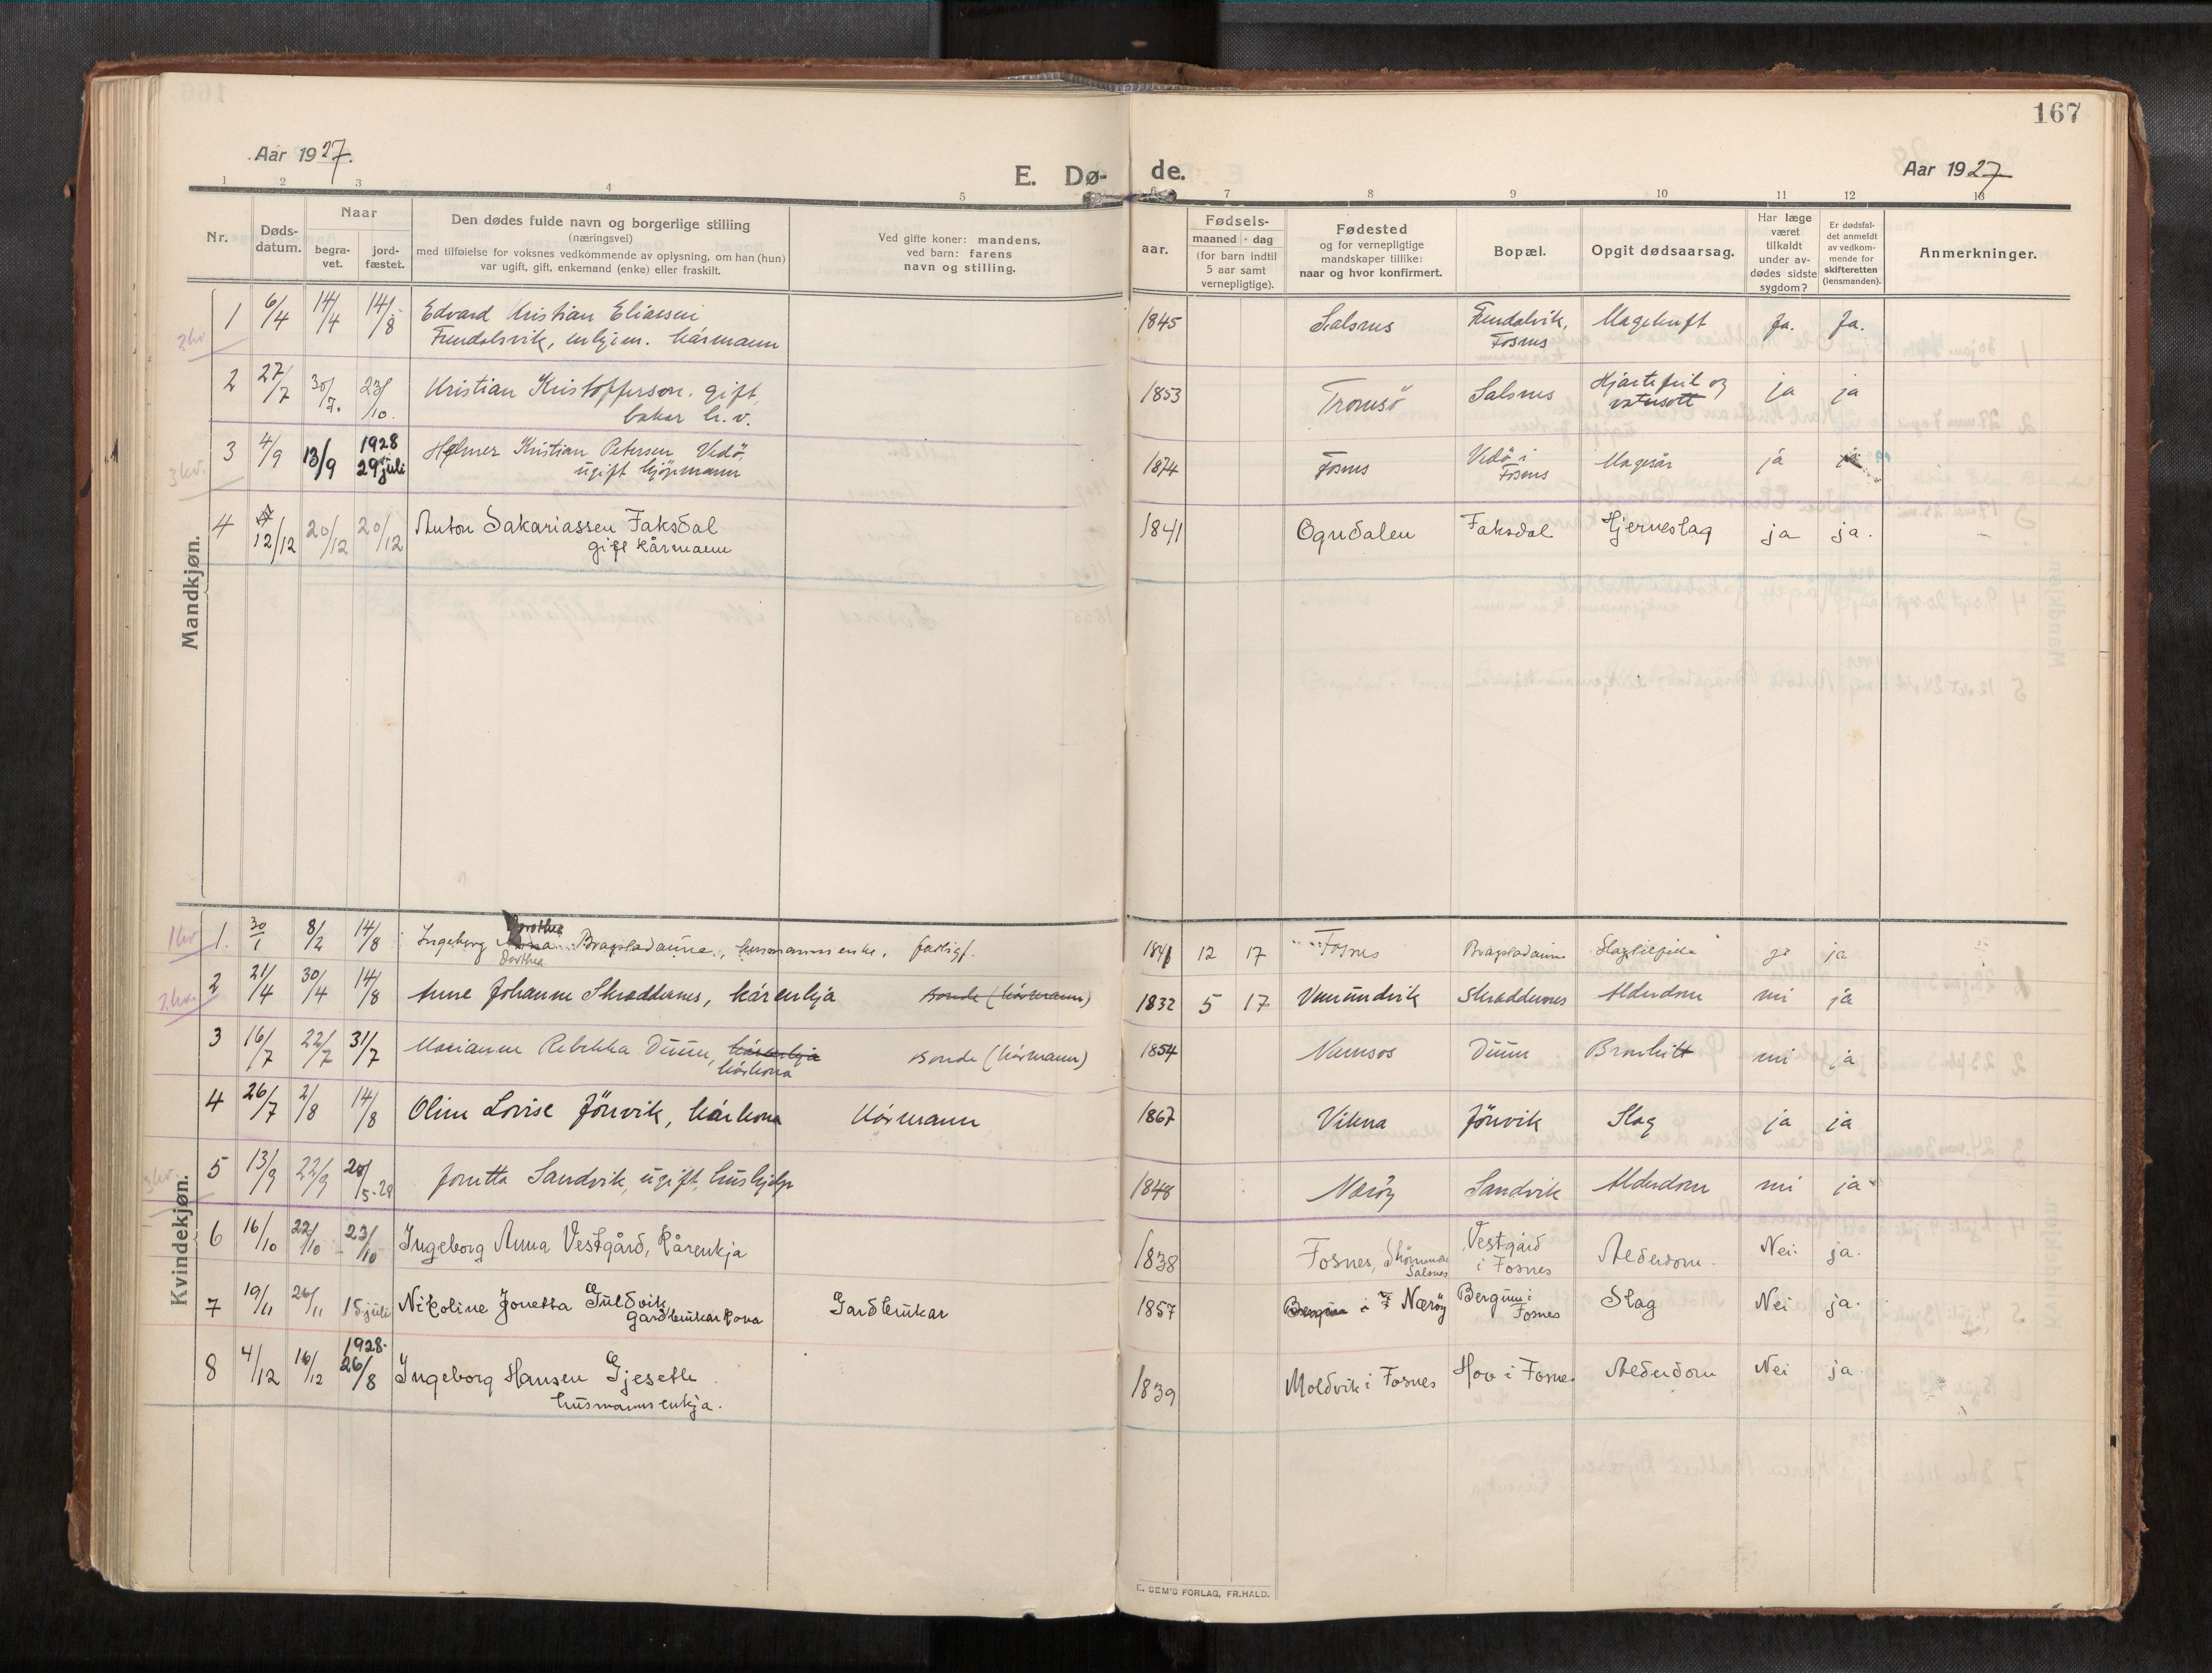 167
Aar 1927.
E. Dø-
de.
Aar 1927
1 2 3 4 5 6 7 8 9 10 11 12 13
Nr.
Døds-
datum.
Naar
begra-
vet.
jord-
fæstet.
Den dødes fulde navn og borgerlige stilling
(næringsvei)
med tilføielse for voksnes vedkommende av oplysning, om han (hun)
var ugift, gift, enkemand (enke) eller fraskilt.
Ved gifte koner: mandens,
ved barn: farens
navn og stilling.
aar.
Fødsels-
maaned · dag
(for barn indtil
5 aar samt
vernepligtige).
Fødested
og for vernepligtige
mandskaper tillike:
naar og hvor konfirmert.
Bopæl.
Opgit dødsaarsag.
Har læge
været
tilkaldt
under av-
dødes sidste
sygdom?
Er dødsfal-
det anmeldt
av vedkom-
mende for
skifteretten
(lensmanden).
Anmerkninger.
Mandkjøn.
2 kv.
1 6/4 14/4 14/8 Edvard Kristian Eliassen 1845 Salsnes Fendalvik, Magekreft Ja. Ja.
Fendalsvik, enkjem. kårmann Fosnes
2 27/7 30/7. 23/10. Kristian Kristofferson. gift, 1853 Tromsö Salsnes Hjartefeil og ja ja
bakar h. v. vatersott
3 kv.
3 4/9 13/9 1928 Helmer Kristian Petersen Vedö, 1874 Fosnes Vedö i Magesår ja ja
29 juli ugift kjöpmann Fosnes
4 12/12 20/12 20/12 Anton Sakariassen Faksdal 1841 Ogndalen Faksdal Hjerneslag ja ja.
gift kårmann
Kvindekjøn.
1 kv.
Dorothea
1. 30/1 8/2 14/8 Ingeborg Bragstadaune, husmannsenke, fatligf. 1841 12 17 Fosnes Bragstadaune ja ja
Dorthea
2 kv.
2 21/4 30/4 14/8 Anne Johanne Skreddernes, kårenkja bonde (kårmann) 1832 5 17 Vemundvik Skreddernes Alderdom nei ja
3 16/7 22/7 31/7 Marianne Rebekka Duun, kårenkja bonde (kårmann) 1854 Namsos Duun Bronkitt nei ja
kårkona
4 26/7 2/8 14/8 Oline Lovise Jönvik, kårkona Kårmann 1867 Vikna Jönvik Slag ja ja
3 kv.
5 13/9 22/9 20/5-28 Jonetta Sandvik, ugift, hushjelp 1848 Nærøy Sandvik Alderdom nei ja
6 16/10 22/10 23/10 Ingeborg Anna Vestgård, Kårenkja 1838 Fosnes, Vestgård Alderdom. Nei ja.
Salsnes i Fosnes
7 19/11 26/11 15 juli Nikoline Jonetta Guldvik, Gardbrukar 1857 i Nærøy Bergum i Slag Nei ja.
gardbrukarkona Fosnes
8 4/12 16/12 1928. Ingeborg Hansen Gjesetle 1839 Moldvik i Fosnes Hov i Fosnes Alderdom Nei ja.
26/8 husmannsenkja.
E. SEM'S FORLAG, FR.HALD.